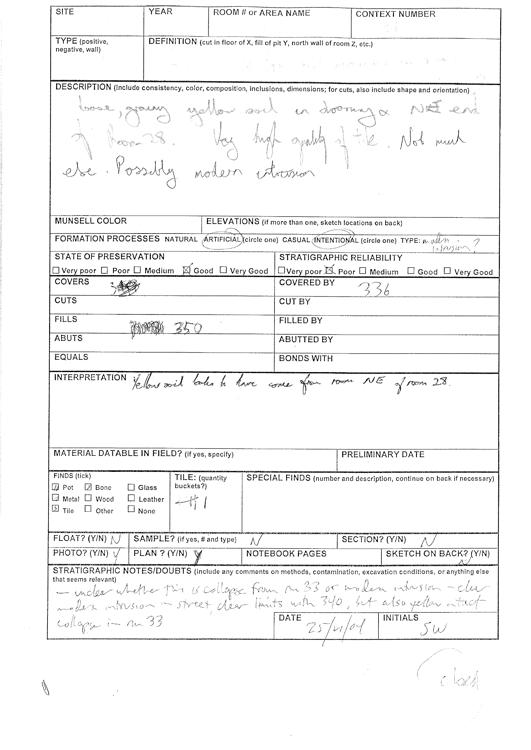 SITE YEAR ROOM # or AREA NAME CONTEXT NUMBER
TYPE (positive, negative, wall) DEFINITION (cut in floor of X, fill of pit Y, north wall of room Z, etc.)
DESCRIPTION (include consistency, color, composition, inclusions, dimensions; for cuts, also include shape and orientation)
loose, grainy yellow soil in doorway NE end
of Room 28. Very high quality of tile. Not much
else. Possibly modern intrusion
MUNSELL COLOR ELEVATIONS (if more than one, sketch locations on back)
FORMATION PROCESSES NATURAL ARTIFICIAL (circle one) CASUAL INTENTIONAL (circle one) TYPE: modern intrusion?
STATE OF PRESERVATION STRATIGRAPHIC RELIABILITY
Very poor Poor Medium Good Very Good Very poor Poor Medium Good Very Good
COVERS COVERED BY 336
CUTS CUT BY
FILLS 350 FILLED BY
ABUTS ABUTTED BY
EQUALS BONDS WITH
INTERPRETATION Yellow soil looks to have come from room NE of room 28.
MATERIAL DATABLE IN FIELD? (if yes, specify) PRELIMINARY DATE
FINDS (tick) TILE: (quantity buckets?) SPECIAL FINDS (number and description, continue on back if necessary)
Pot Bone Glass
Metal Wood Leather 1
Tile Other None
FLOAT? (Y/N) N SAMPLE? (if yes, # and type) N SECTION? (Y/N) N
PHOTO? (Y/N) Y PLAN ? (Y/N) Y NOTEBOOK PAGES SKETCH ON BACK? (Y/N)
STRATIGRAPHIC NOTES/DOUBTS (include any comments on methods, contamination, excavation conditions, or anything else that seems relevant)
- unclear whether this is collapse from rm 33 or modern intrusion - clear
modern intrusion - street, clear limits with 340, but also yellow intact
collapse in rm 33
DATE 25/VI/04 INITIALS SW
closed